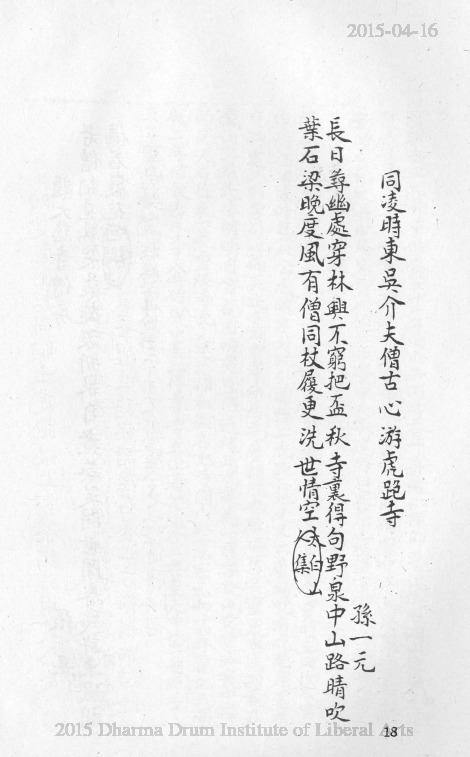 2015-04-16
同凌時東吳介夫僧古心游虎跑寺
孫一元
長日尋幽處穿林興不窮把盃秋寺裏得句野泉中山路晴吹
葉石梁晚度風有僧同杖履更洗世情空太白山
人集
18
2015 Dharma Drum Institute of Liberal Arts